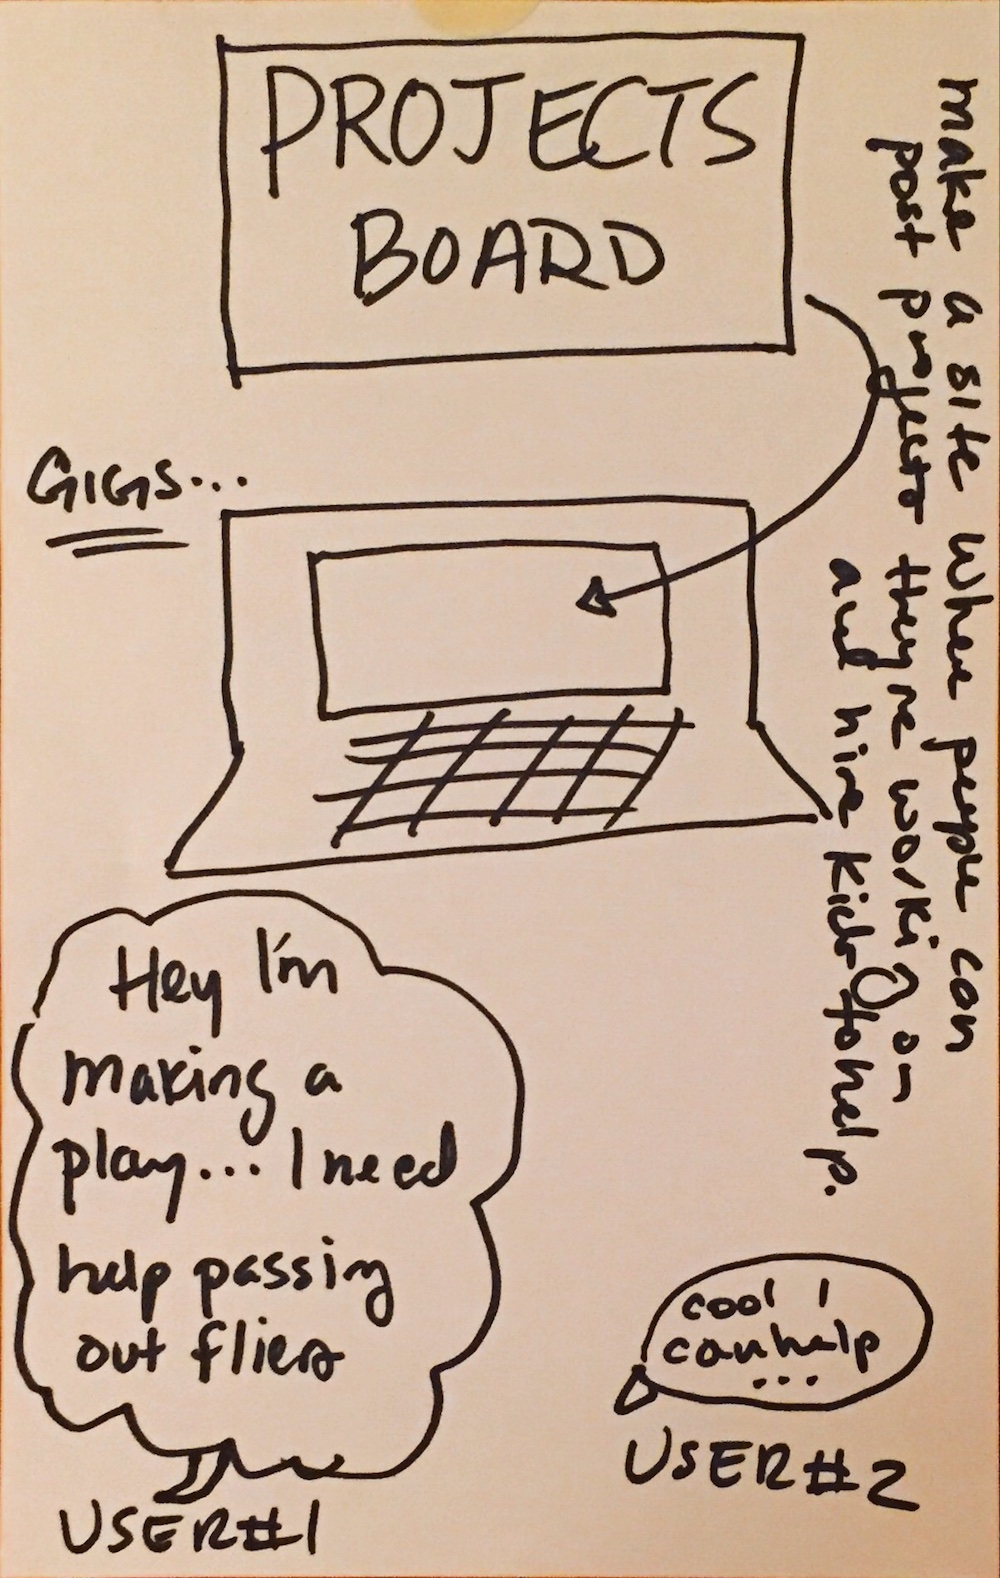 PROJECTS
BOARD
make a site where people can
post projects they're working on
and hire kids to help.
GIGS...
Hey I'm
making a
play... I need
help passing
out fliers
USER#1
cool I
can help
...
USER#2